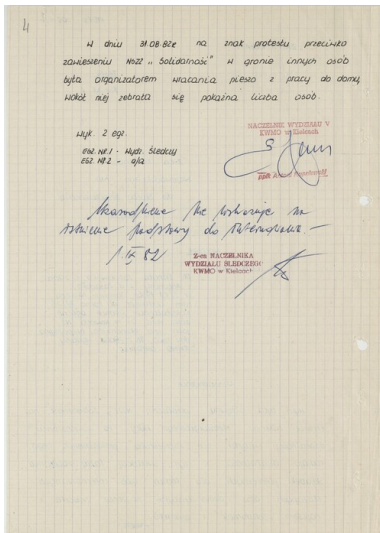 4
W dniu 31.08.82r na znak protestu przeciwko
zawieszeniu NSZZ „Solidarność" w gronie innych osób
była organizatorem wracania pieszo z pracy do domu,
wokół niej zebrała się pokaźna liczba osób.
Wyk. 2 egz.
EGZ. NR. 1 - Wydz. Śledczy
EGZ. NR. 2 - a/a
NACZELNIK WYDZIAŁU V
KWMO w Kielcach
nie wskazuje na
istnienie podstawy do
1 IX 82
Z-ca NACZELNIKA
WYDZIAŁU ŚLEDCZEGO
KWMO w Kielcach